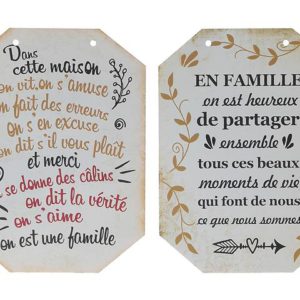 Dans
cette maison
on vit, on s'amuse
on fait des erreurs
on s'en excuse
on dit s'il vous plaît
et merci
on se donne des câlins
on dit la vérité
on s'aime
on est une famille
EN FAMILLE
on est heureux
de partager
ensemble
tous ces beaux
moments de vie
qui font de nous
ce que nous sommes